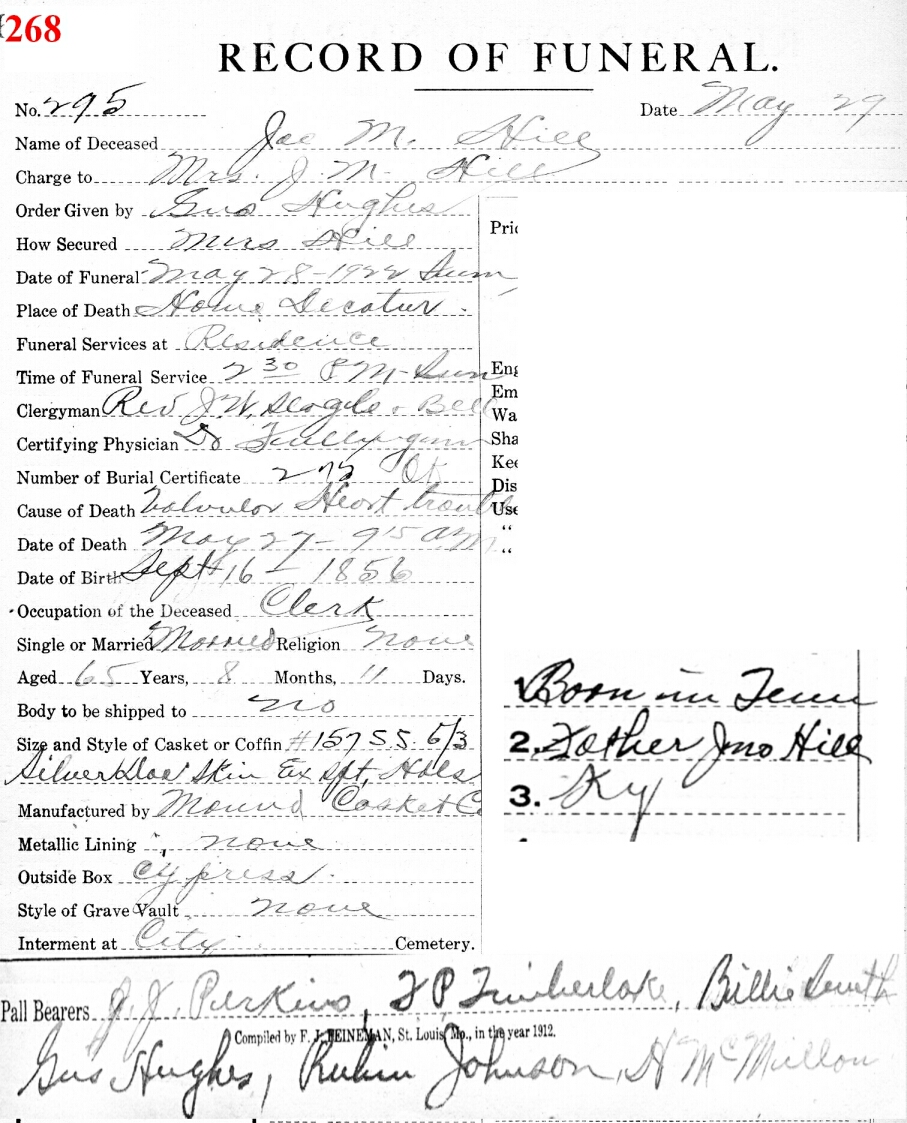 268
RECORD OF FUNERAL.
No. 295 Date May 29
Name of Deceased Joe M. Hill
Charge to Mrs. J. M. Hill
Order Given by Gus Hughes
How Secured Mrs Hill
Date of Funeral May 28-1922 Sun
Place of Death Home Decatur
Funeral Services at Residence
Time of Funeral Service 2 30 P M- Sun
Clergyman Rev J. W. & Bell
Certifying Physician Dr
Number of Burial Certificate Ok
Cause of Death Valvulor Heart trouble
Date of Death May 27- 9 15 AM
Date of Birth Sept 16 - 1856
Occupation of the Deceased Clerk
Single or Married Married Religion none
Aged 65 Years, 8 Months, 11 Days.
Body to be shipped to no
Size and Style of Casket or Coffin #157 SS. 6/3
Silver Skin Ex
Manufactured by Mound Casket Co
Metallic Lining none
Outside Box Cypress
Style of Grave Vault none
Interment at City Cemetery.
Pric
Eng
Em
Wa
Sha
Kee
Dis
Use
“
“
1. Born in Tenn
2. Father Jno Hill
3. Ky
Pall Bearers J. J. Perkins, T P Timberlake, Billie Smith
Compiled by F. J. FEINEMAN, St. Louis, Mo., in the year 1912.
Gus Hughes, Rubin Johnson, H McMillon